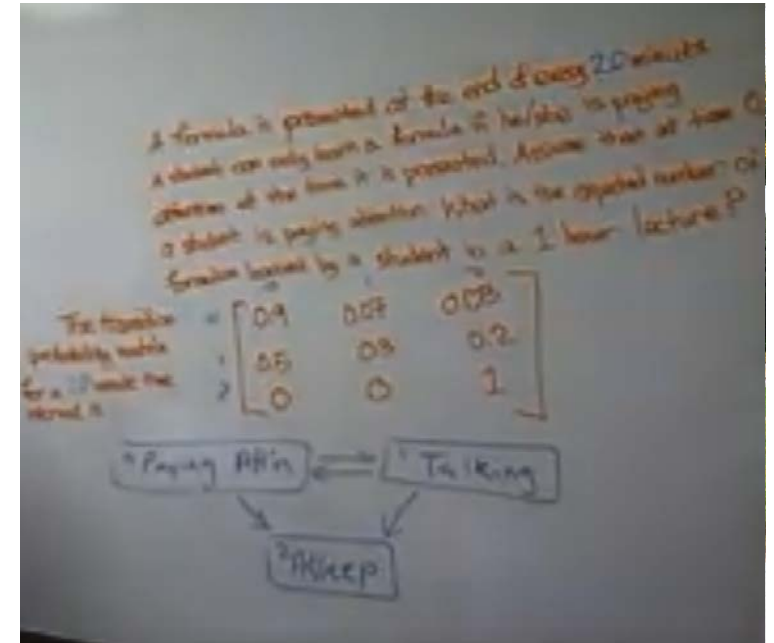 A formula is presented at the end of every 20 minutes
a student can only learn a formula if he/she is paying
attention at the time it is presented. Assume that at time 0
a student is paying attention. What is the expected number of
formulae learned by a student in a 1 hour lecture?
0 1 2
The transition
probability matrix
for a 20 minute time
interval is
0 0.9 0.07 0.03
1 0.5 0.3 0.2
2 0 0 1
0 Paying Att'n
1 Talking
2 Asleep